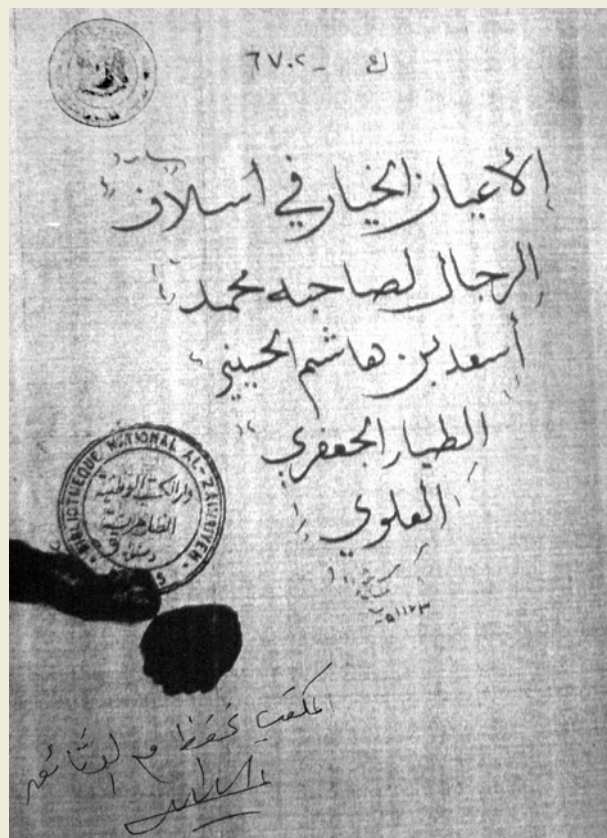 ك - ٦٧٠٢
الأعيان الخيار في أسلاف
الرجال لصاحبه محمد
أسعد بن هاشم الحسيني
الطيار الجعفري
العلوي
سنة
١١٢٣هـ
BIBLIOTHEQUE NATIONAL AL-ZAHIRIYEH
دار الكتب الوطنية
الظاهرية
دمشق